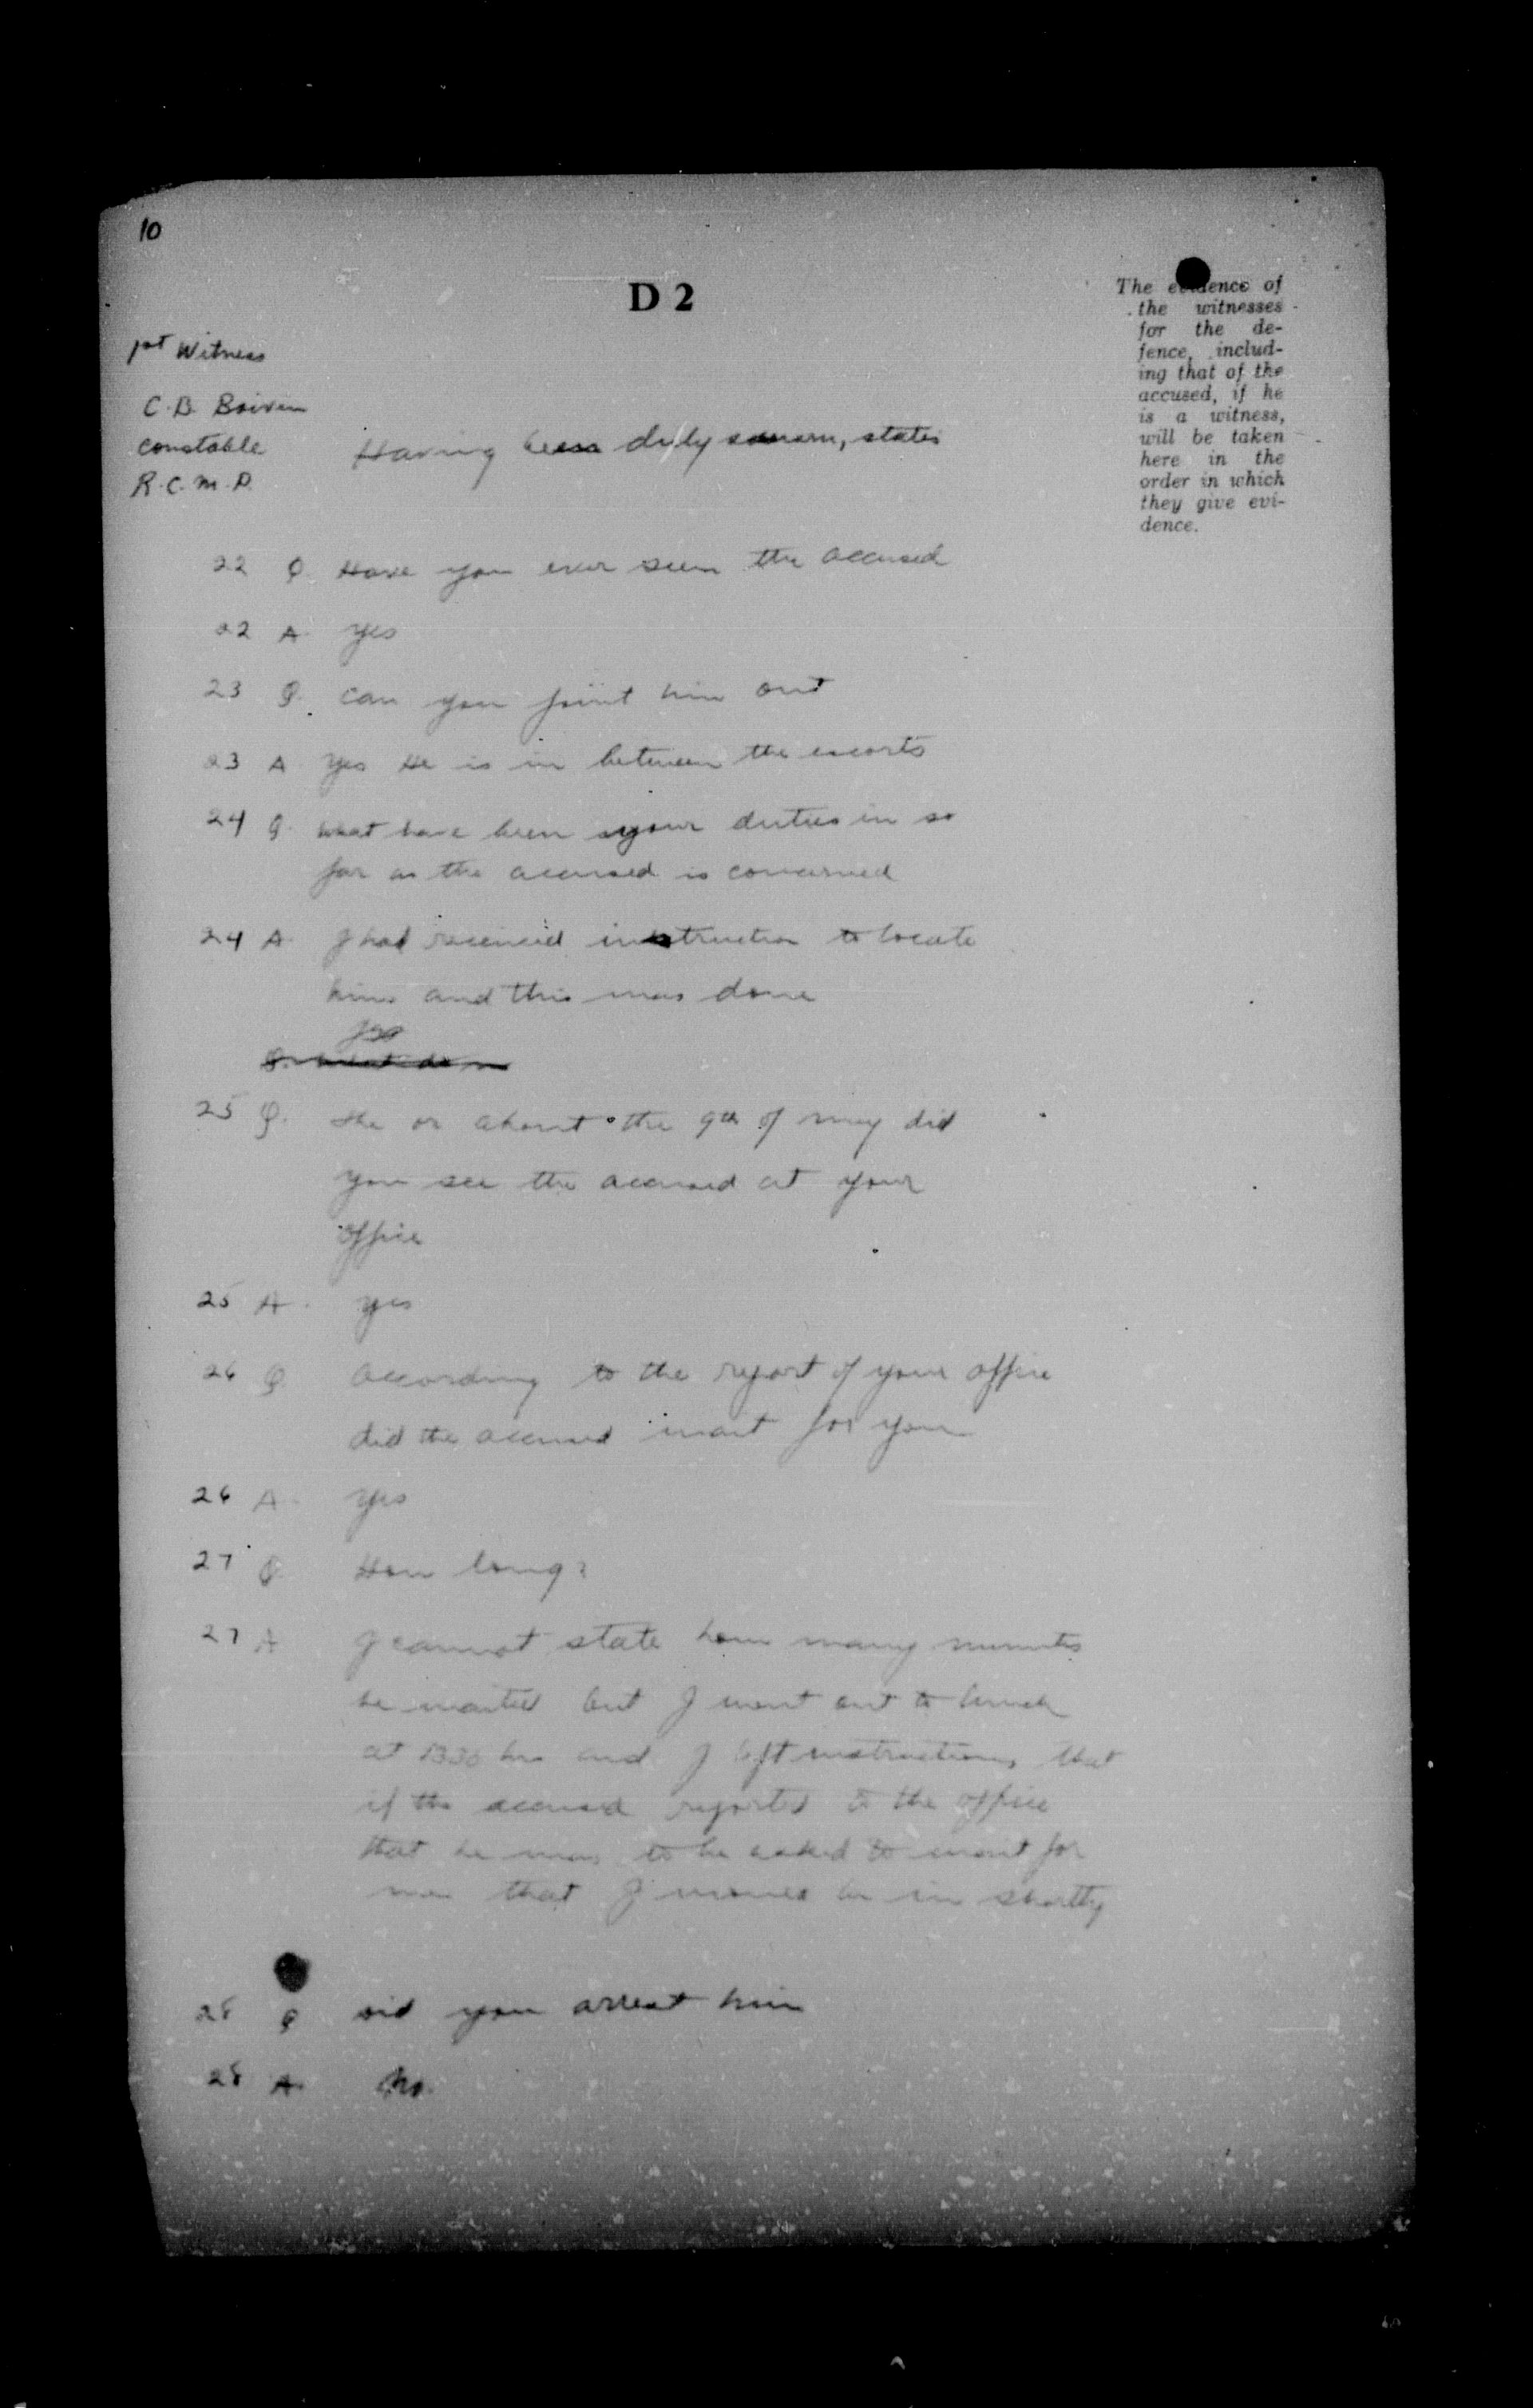 10
D 2
The evidence of
the witnesses
for the de-
fence, includ-
ing that of the
accused, if he
is a witness,
will be taken
here in the
order in which
they give evi-
dence.
1st Witness
C. B. Boivin
constable
R.C.M.P.
Having been duly sworn, states
22 Q. Have you ever seen the accused
22 A. Yes
23 Q. Can you point him out
23 A Yes He is in between the escorts
24 Q. What have been your duties in so
far as the accused is concerned
24 A. I had received instruction to locate
him and this was done
25 Q. the or about the 9th of may did
you see the accused at your
office
25 A. yes
26 Q. According to the report of your office
did the accused wait for you
26 A. Yes
27 Q. How long?
27 A I cannot state how many minutes
he waited but I went out to lunch
at 1330 hrs and I left instructions that
if the accused reported to the office
that he was to be asked to wait for
me that I would be in shortly
28 Q Did you arrest him
28 A. No.